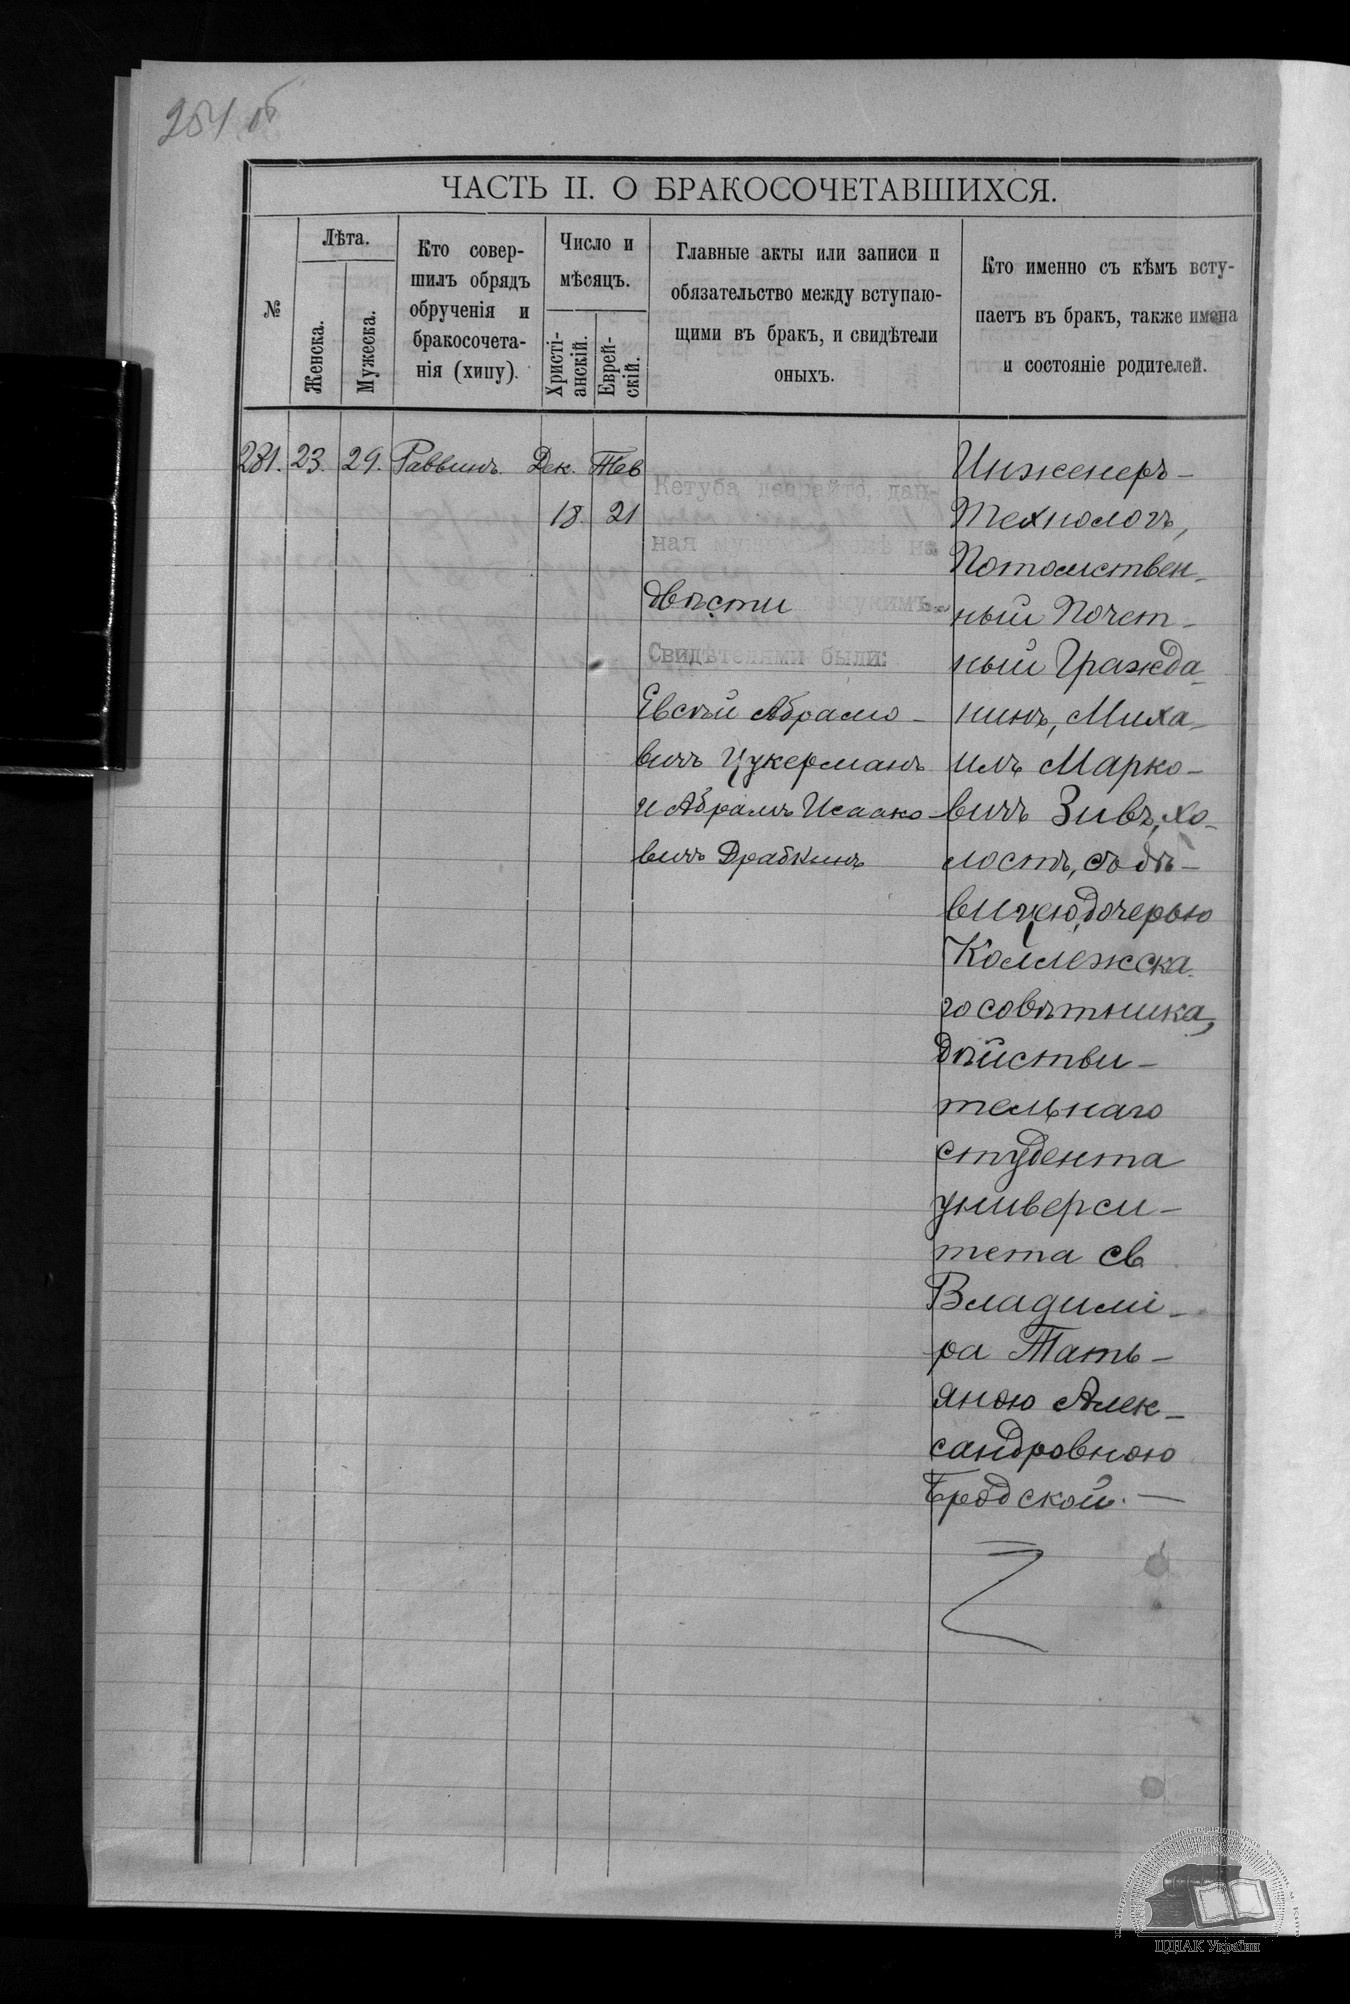 254 об
ЧАСТЬ II. О БРАКОСОЧЕТАВШИХСЯ.
№
Лѣта.
Женска.
Мужеска.
Кто совер-
шилъ обрядъ
обрученія и
бракосочета-
нія (хипу).
Число и
мѣсяцъ.
Христі-
анскій.
Еврей-
скій.
Главные акты или записи и
обязательство между вступаю-
щими въ бракъ, и свидѣтели
оныхъ.
Кто именно съ кѣмъ всту-
паетъ въ бракъ, также имена
и состояніе родителей.
281. 23. 29. Раввинъ. Дек. Тев
18. 21
Кетуба деорайто, дан-
ная мужемъ женѣ на
двѣсти
Свидѣтелями были:
Евсѣй Абрамо-
вичъ Цукерманъ
и Абрамъ Исаако-
вичъ Драбкинъ
Инженеръ-
Технологъ,
Потомствен-
ный Почет-
ный Гражда-
нинъ, Миха-
илъ Марко-
вичъ Зивъ, хо-
лостъ, съ дѣ-
вицею, дочерью
Коллежска-
го совѣтника,
Дѣйстви-
тельнаго
студента
универси-
тета св.
Владимі-
ра Тать-
яною Алек-
сандровною
Бродской. —
ЦДІАК України